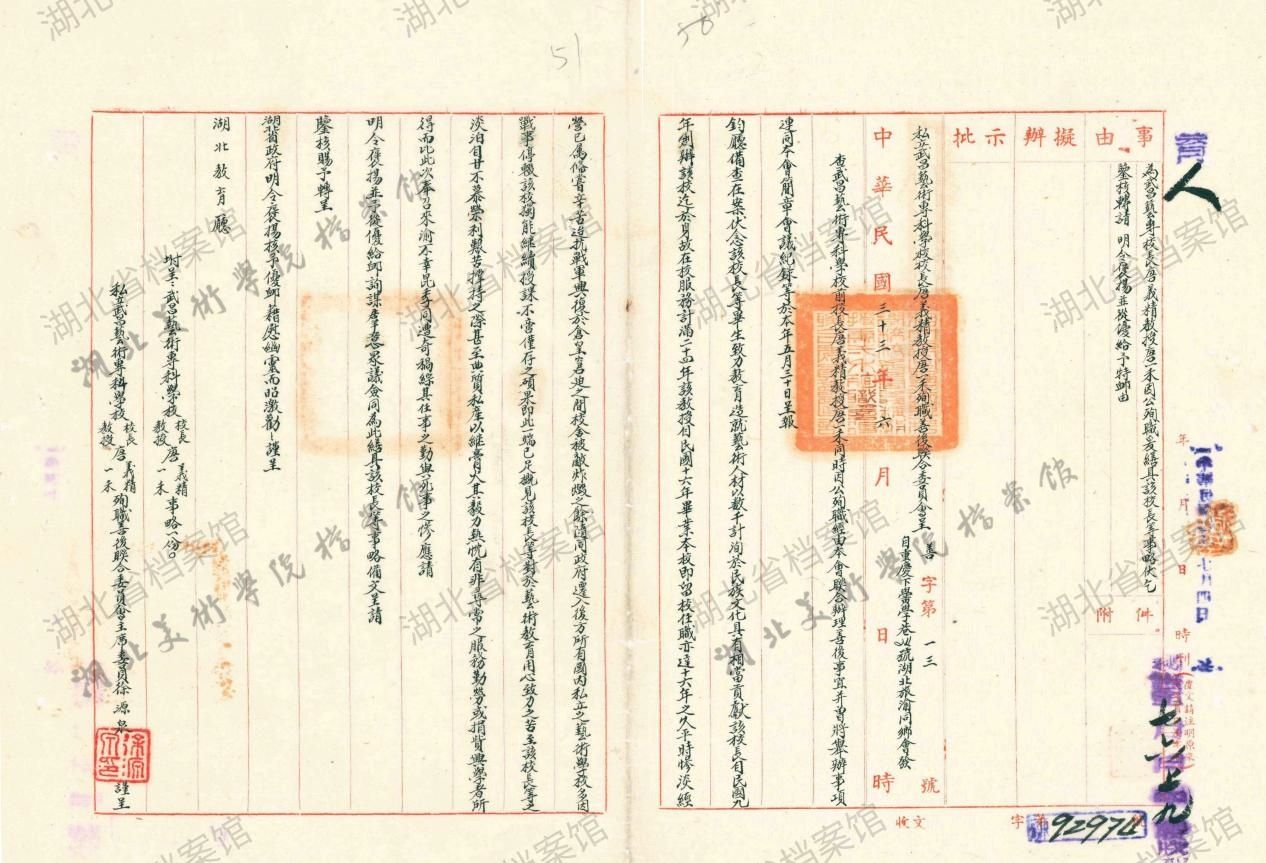 51
50
事由
擬辦
批示
為武昌藝專校長唐義精教授唐一禾因公殉職妥繕具該校長等事略伏乞
鑒核轉請 明令褒揚並從優給予特卹由
附件
年 月 日 時
私立武昌藝術專科學校校長唐義精教授唐一禾殉職善後聯合委員會呈
善字第一三號
自重慶下醫學巷 號湖北旅渝同鄉會發
中華民國三十三年六月 日 時
查武昌藝術專科學校前校長唐義精教授唐一禾同時因公殉職經由本會聯合辦理善後事宜并曾將舉辦事項
連同本會簡章會議紀錄等於本年五月三十日呈報
鈞廳備查在案伏念該校長等畢生致力教育造就藝術人材以數千計洵於民族文化具有相當貢獻該校長自民國九
年創辦該校迄於身故在校服務計滿二十四年該教授付民國十六年畢業本校即留校任職亦達十六年之久平時慘淡經
營已屬備嘗辛苦迨抗戰軍興復於倉皇窘迫之間校舍被敵炸燬之餘隨同政府遷入後方所有國內私立之藝術學校多因
戰事停輟該校獨能繼續授課不啻僅存之碩果即此一端已足概見該校長等對於藝術教育用心致力之苦至該校長等之
淡泊自甘不慕榮利艱苦撐持之際甚至典質私產以繼膏火其毅力熱忱有非尋常之服務勤勞或捐貲興學者所
得而比此次奉召來渝不幸昆季同遭奇禍綜其任事之勤與死事之慘應請
明令褒揚並予從優給卹詢謀 眾議僉同為此繕具該校長等事略備文呈請
鑒核賜予轉呈
湖北省政府明令褒揚核予優卹藉慰幽靈而昭激勸 謹呈
湖北教育廳
坿呈：武昌藝術專科學校校長教授唐義精一禾事略一份。
私立武昌藝術專科學校校長教授唐義精一禾殉職善後聯合委員會主席委員徐源泉 謹呈
收文 字第92974號
七月四日
湖北省档案馆
湖北美術學院檔案館